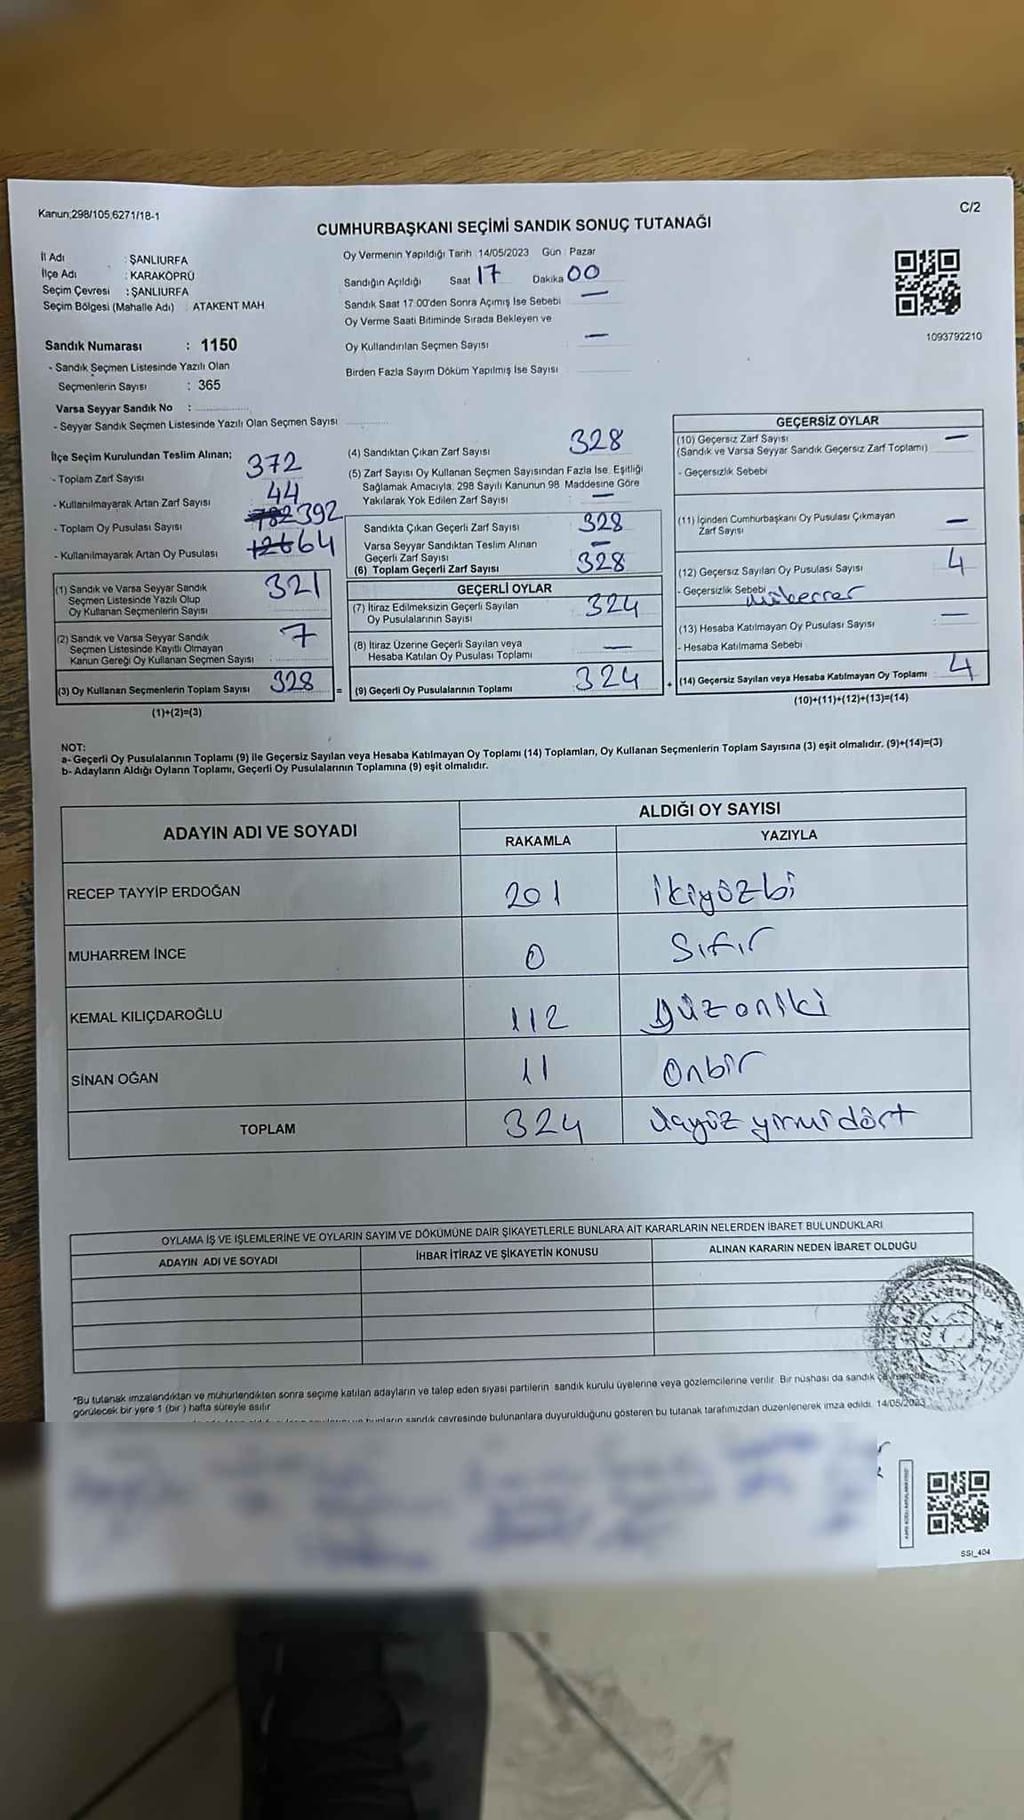 Kanun;298/105,6271/18-1
C/2
CUMHURBAŞKANI SEÇİMİ SANDIK SONUÇ TUTANAĞI
İl Adı : ŞANLIURFA
İlçe Adı : KARAKÖPRÜ
Seçim Çevresi : ŞANLIURFA
Seçim Bölgesi (Mahalle Adı) : ATAKENT MAH
Oy Vermenin Yapıldığı Tarih : 14/05/2023 Gün : Pazar
Sandığın Açıldığı Saat 17 Dakika 00
Sandık Saat 17:00'den Sonra Açımış İse Sebebi —
Oy Verme Saati Bitiminde Sırada Bekleyen ve
Oy Kullandırılan Seçmen Sayısı —
Birden Fazla Sayım Döküm Yapılmış İse Sayısı
1093792210
Sandık Numarası : 1150
- Sandık Seçmen Listesinde Yazılı Olan
Seçmenlerin Sayısı : 365
Varsa Seyyar Sandık No :
- Seyyar Sandık Seçmen Listesinde Yazılı Olan Seçmen Sayısı
İlçe Seçim Kurulundan Teslim Alınan;
- Toplam Zarf Sayısı 372
- Kullanılmayarak Artan Zarf Sayısı 44
- Toplam Oy Pusulası Sayısı 392
- Kullanılmayarak Artan Oy Pusulası 64
(1) Sandık ve Varsa Seyyar Sandık
Seçmen Listesinde Yazılı Olup
Oy Kullanan Seçmenlerin Sayısı 321
(2) Sandık ve Varsa Seyyar Sandık
Seçmen Listesinde Kayıtlı Olmayan
Kanun Gereği Oy Kullanan Seçmen Sayısı 7
(3) Oy Kullanan Seçmenlerin Toplam Sayısı 328 =
(1)+(2)=(3)
(4) Sandıktan Çıkan Zarf Sayısı 328
(5) Zarf Sayısı Oy Kullanan Seçmen Sayısından Fazla İse, Eşitliği
Sağlamak Amacıyla, 298 Sayılı Kanunun 98 Maddesine Göre
Yakılarak Yok Edilen Zarf Sayısı —
Sandıkta Çıkan Geçerli Zarf Sayısı 328
Varsa Seyyar Sandıktan Teslim Alınan
Geçerli Zarf Sayısı —
(6) Toplam Geçerli Zarf Sayısı 328
GEÇERLİ OYLAR
(7) İtiraz Edilmeksizin Geçerli Sayılan
Oy Pusulalarının Sayısı 324
(8) İtiraz Üzerine Geçerli Sayılan veya
Hesaba Katılan Oy Pusulası Toplamı —
(9) Geçerli Oy Pusulalarının Toplamı 324 +
GEÇERSİZ OYLAR
(10) Geçersiz Zarf Sayısı —
(Sandık ve Varsa Seyyar Sandık Geçersiz Zarf Toplamı)
- Geçersizlik Sebebi
(11) İçinden Cumhurbaşkanı Oy Pusulası Çıkmayan
Zarf Sayısı —
(12) Geçersiz Sayılan Oy Pusulası Sayısı 4
- Geçersizlik Sebebi mükerrer
(13) Hesaba Katılmayan Oy Pusulası Sayısı —
- Hesaba Katılmama Sebebi
(14) Geçersiz Sayılan veya Hesaba Katılmayan Oy Toplamı 4
(10)+(11)+(12)+(13)=(14)
NOT:
a- Geçerli Oy Pusulalarının Toplamı (9) ile Geçersiz Sayılan veya Hesaba Katılmayan Oy Toplamı (14) Toplamları, Oy Kullanan Seçmenlerin Toplam Sayısına (3) eşit olmalıdır. (9)+(14)=(3)
b- Adayların Aldığı Oyların Toplamı, Geçerli Oy Pusulalarının Toplamına (9) eşit olmalıdır.
ADAYIN ADI VE SOYADI
ALDIĞI OY SAYISI
RAKAMLA YAZIYLA
RECEP TAYYİP ERDOĞAN 201 ikiyüzbi
MUHARREM İNCE 0 Sıfır
KEMAL KILIÇDAROĞLU 112 yüzoniki
SİNAN OĞAN 11 Onbir
TOPLAM 324 üçyüz yirmi dört
OYLAMA İŞ VE İŞLEMLERİNE VE OYLARIN SAYIM VE DÖKÜMÜNE DAİR ŞİKAYETLERLE BUNLARA AİT KARARLARIN NELERDEN İBARET BULUNDUKLARI
ADAYIN ADI VE SOYADI İHBAR İTİRAZ VE ŞİKAYETİN KONUSU ALINAN KARARIN NEDEN İBARET OLDUĞU
*Bu tutanak imzalandıktan ve mühürlendikten sonra seçime katılan adayların ve talep eden siyasi partilerin sandık kurulu üyelerine veya gözlemcilerine verilir. Bir nüshası da sandık
görülecek bir yere 1 (bir) hafta süreyle asılır
sandık çevresinde bulunanlara duyurulduğunu gösteren bu tutanak tarafımızdan düzenlenerek imza edildi. 14/05/2023
SSI_404